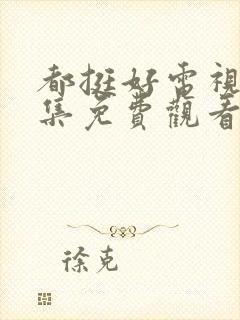 都挺好電視
集免費觀看
徐克